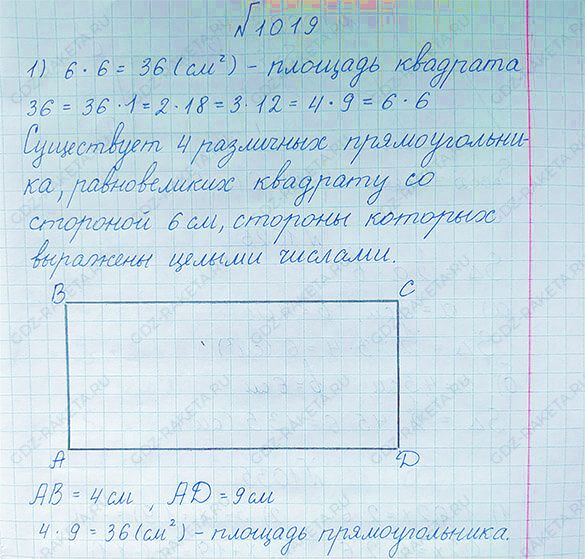 №1019
1) 6 · 6 = 36 (см²) - площадь квадрата
36 = 36 · 1 = 2 · 18 = 3 · 12 = 4 · 9 = 6 · 6
Существует 4 различных прямоугольни-
ка, равновеликих квадрату со
стороной 6 см, стороны которых
выражены целыми числами.
B C
A D
AB = 4 см, AD = 9 см
4 · 9 = 36 (см²) - площадь прямоугольника.
GDZ-RAKETA.RU